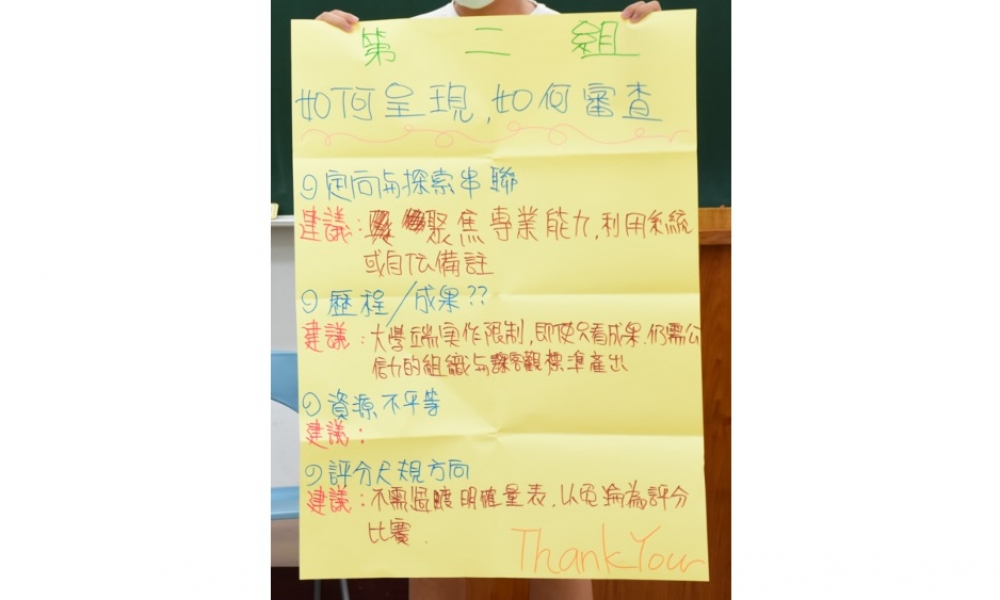 第二組
如何呈現,如何審查
定向與探索串聯
建議:聚焦專業能力,利用系統
或自傳備註
歷程/成果??
建議:大學端實作限制,即使只看成果.仍需公
信力的組織與客觀標準產出
資源不平等
建議:
評分尺規方向
建議:不需過度明確量表.以免淪為評分
比賽.
Thank You